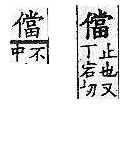 儅止也又丁宕切
儅不中